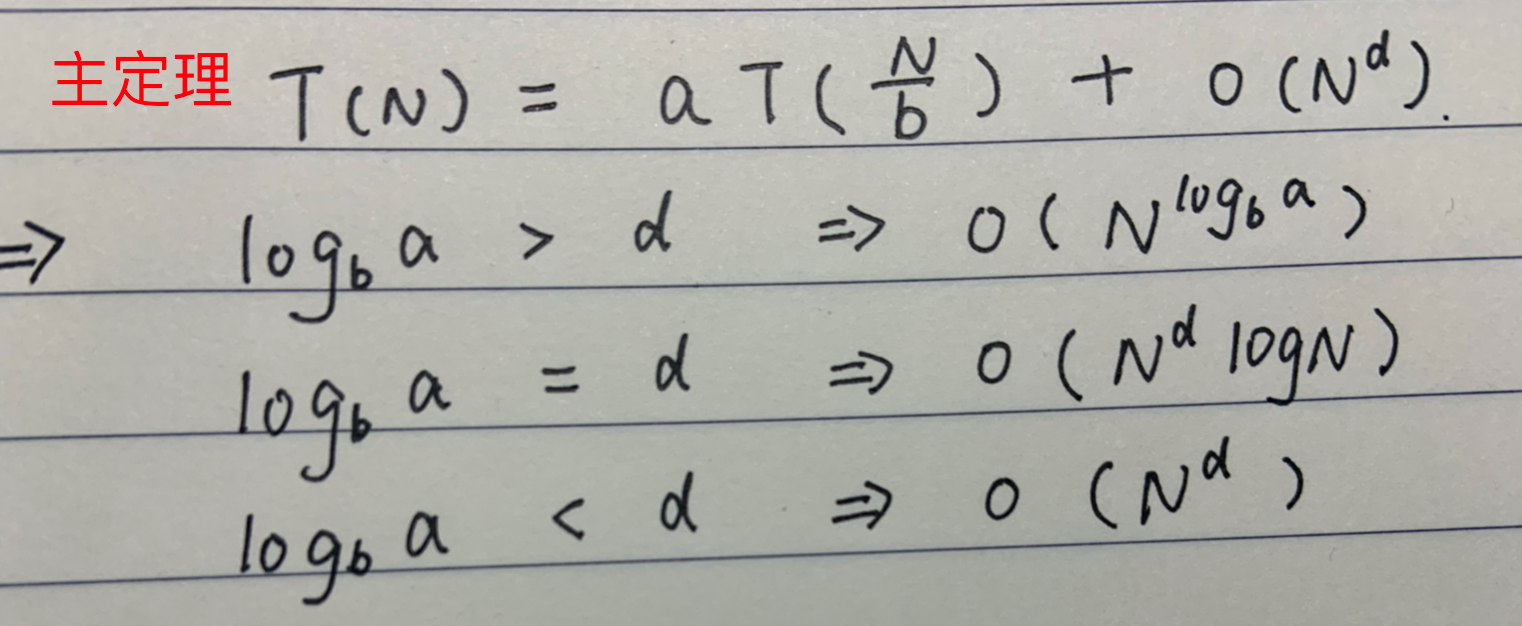 主定理 T(N) = a T(N/b) + O(N^d).
=> log_b a > d => O(N^{log_b a})
log_b a = d => O(N^d logN)
log_b a < d => O(N^d)